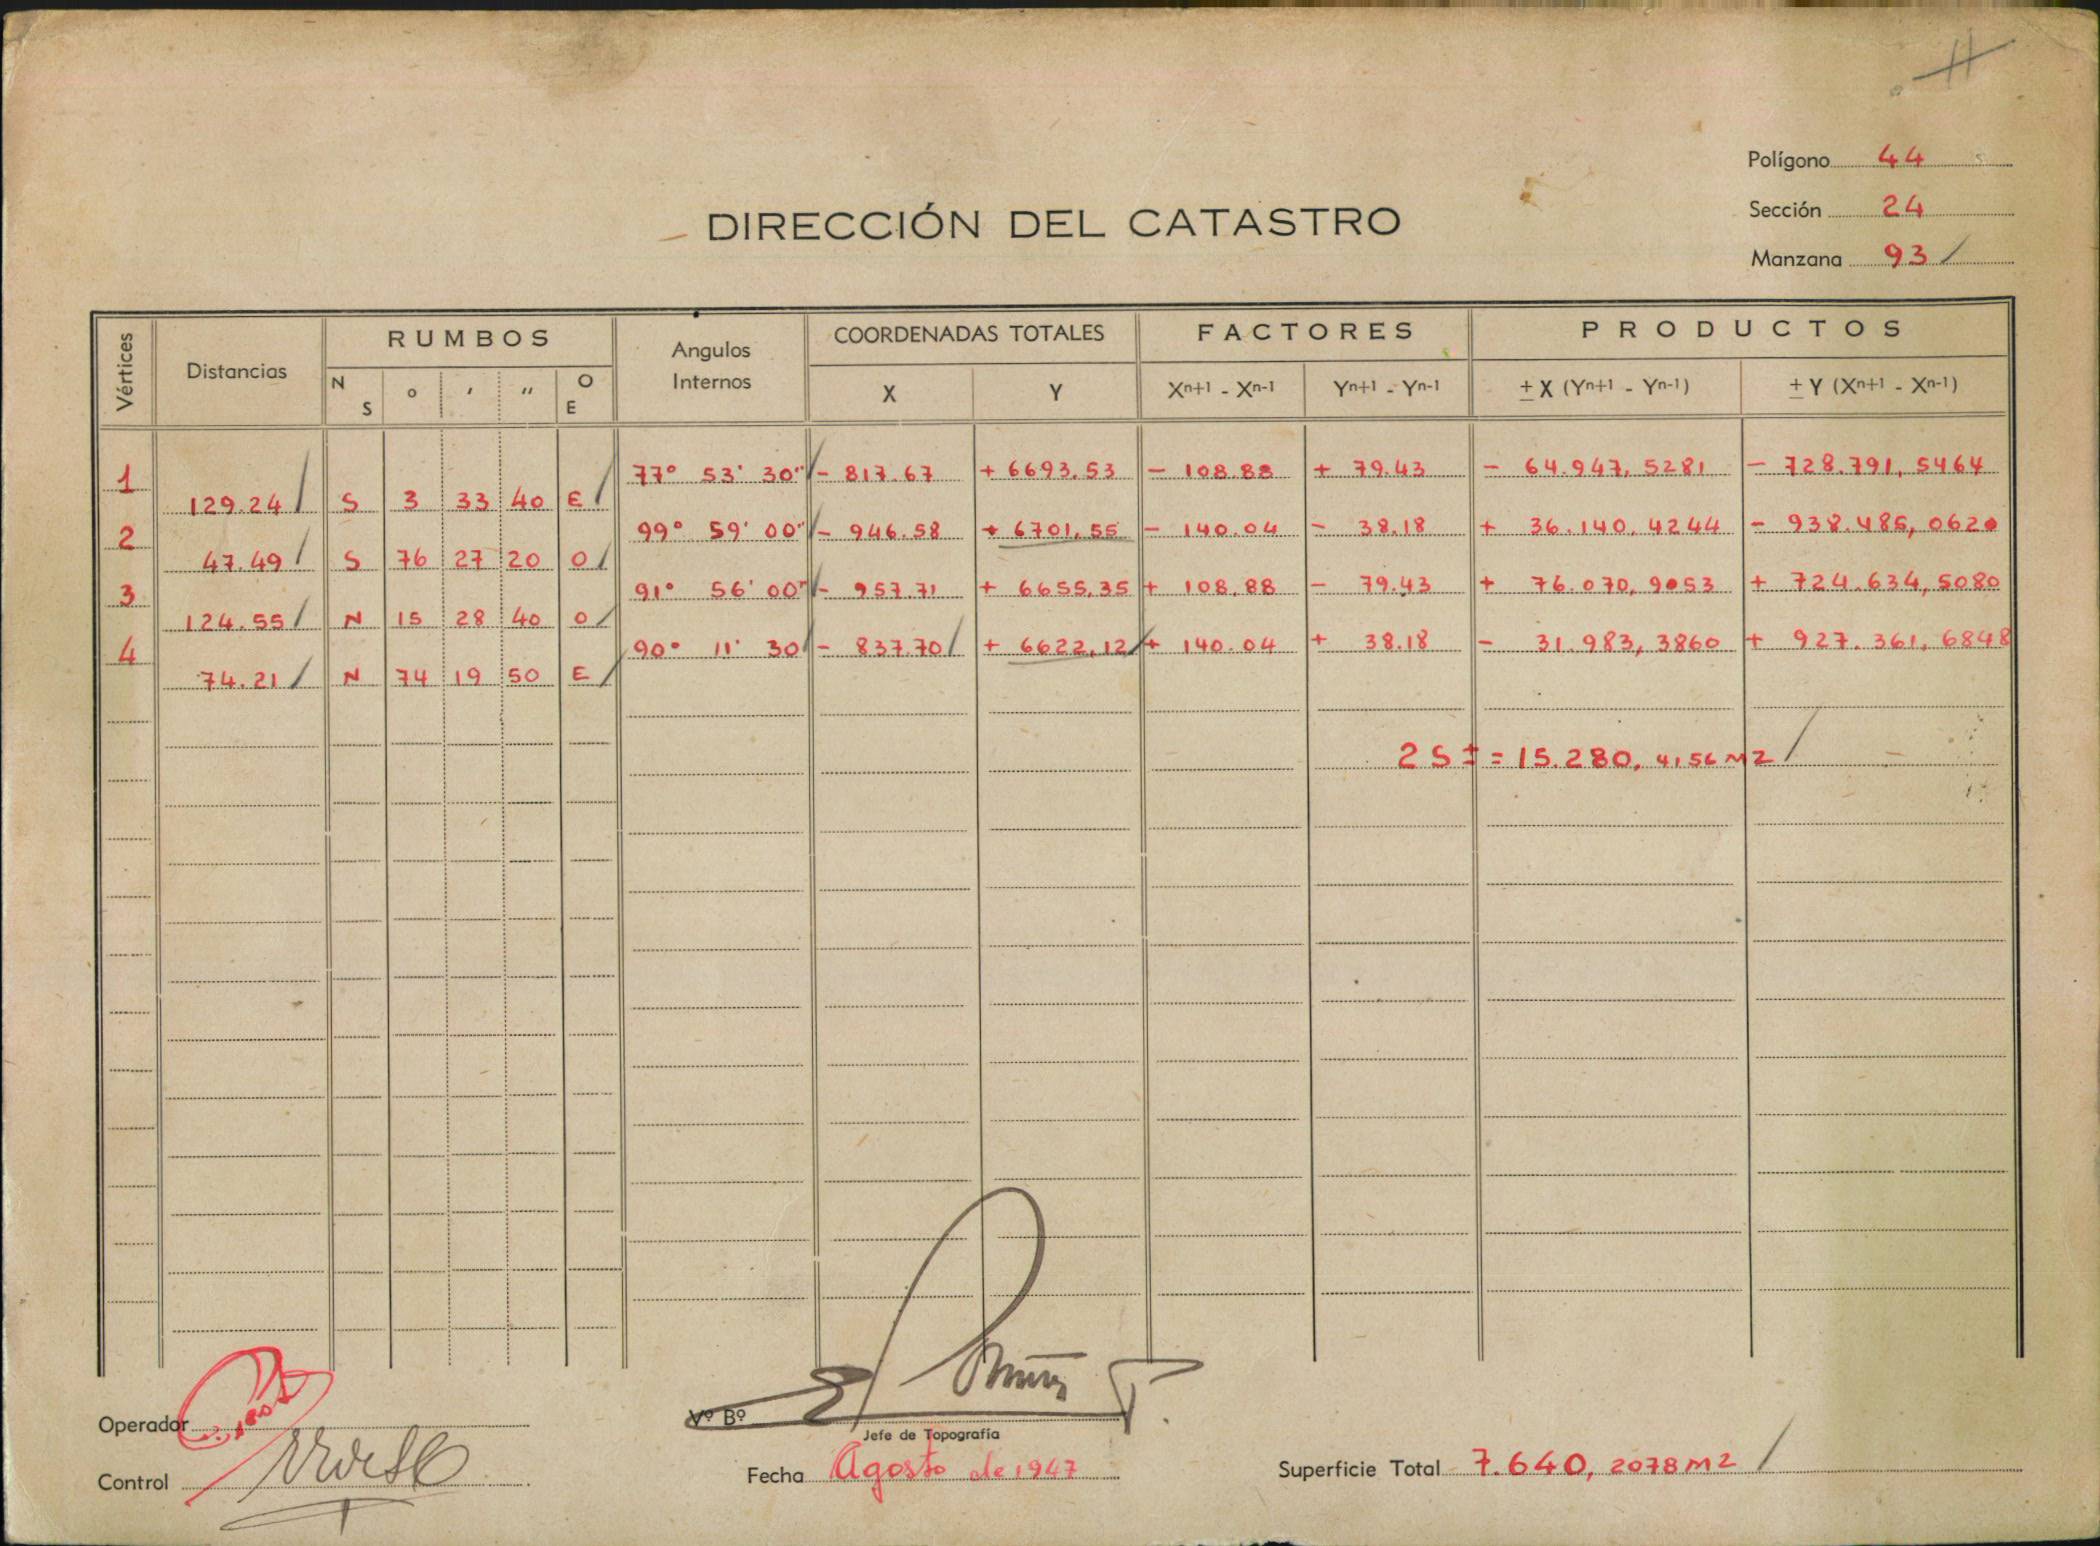 Polígono 44
Sección 24
DIRECCIÓN DEL CATASTRO
Manzana 93
Vértices Distancias RUMBOS Angulos Internos COORDENADAS TOTALES FACTORES PRODUCTOS
N S ° ' " O E X Y Xn+1 - Xn-1 Yn+1 - Yn-1 ± X (Yn+1 - Yn-1) ± Y (Xn+1 - Xn-1)
1 77° 53' 30" - 817.67 + 6693.53 - 108.88 + 79.43 - 64.947,5281 - 728.791,5464
129.24 S 3 33 40 E
2 99° 59' 00" - 946.58 + 6701,55 - 140.04 - 38.18 + 36.140,4244 - 938.485,0620
47.49 S 76 27 20 O
3 91° 56' 00" - 957.71 + 6655,35 + 108,88 - 79.43 + 76.070,9053 + 724.634,5080
124.55 N 15 28 40 O
4 90° 11' 30 - 837.70 + 6622,12 + 140.04 + 38.18 - 31.983,3860 + 927.361,6848
74.21 N 74 19 50 E
2 S ± = 15.280,4156 M2
Operador
Vº Bº
Jefe de Topografía
Control
Fecha Agosto de 1947
Superficie Total 7.640,2078 M2